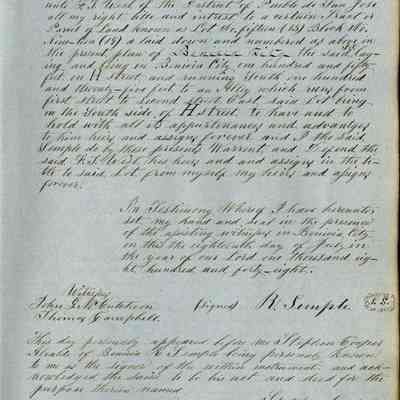 unto F. S. West of the District of Pueblo de San Jose
all my right title and intrest to a certain Tract or
Parcel of Land known as Lot No. fifteen (15) Block No.
Nineteen (19) as laid down and numbered as alge in
the present plan of Benicia City the said Lay-
ing and being in Benicia City one hundred and fifty
feet on H Street and running South one hundred
and twenty-five feet to an Alley which runs from
first Street to Second Street East said Lot being
on the South side of H Street. to have and to
hold with all its appertenances and advantages
to him heirs and assigns forever and I the said
Semple do by these presents Warrent and Defend the
said F. S. West, his heirs and and assigns in the ti-
tle to said Lot from myself my heirs and assigns
forever.
In Testimony Whereof I have hereunto
set my hand and seal in the presence
of the assisting witness in Benicia City
on this the eighteenth day of July in
the year of our Lord one thousand eig-
ht hundred and forty-eight.
Witness
John S. McCutcheon (signed) R. Semple L. S.
Thomas Campbell
This day personaly appeared before me Stephen Cooper
Alcalde of Benicia R. Semple being personaly known
to me is the signer of the within instrument and ack-
nowledged the same to be his act and deed for the
purpose therein named